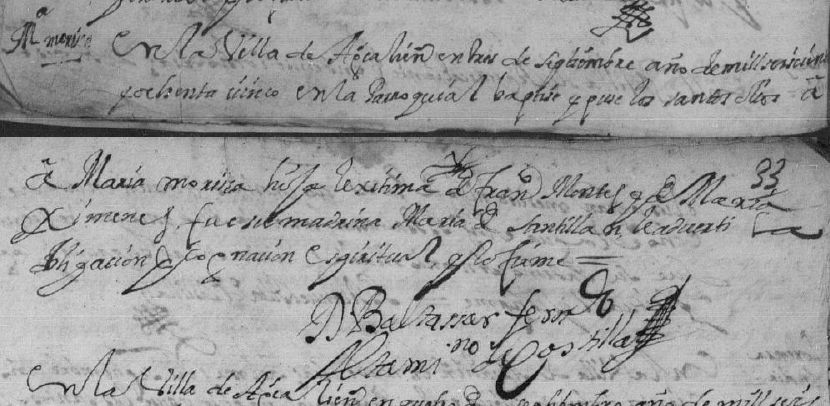 Mª morisca
En la Villa de Apcᵃ tien en tres de septiembre año de mill seiscien
y ochenta y cinco en la Parroquial baptise y puse los santos olios â
33
â María morisca hija lexitima de franᶜᵒ Montes y de María
Ximenes, fue su madrina María de Santillan, le advertí la
obligación y cognación espiritual y lo firme =
D Baltassar ferᵈᵒ
Altamiᵒ y Costilla
En la Villa de Apcᵃ tien en quatro de septiembre año de mill seis